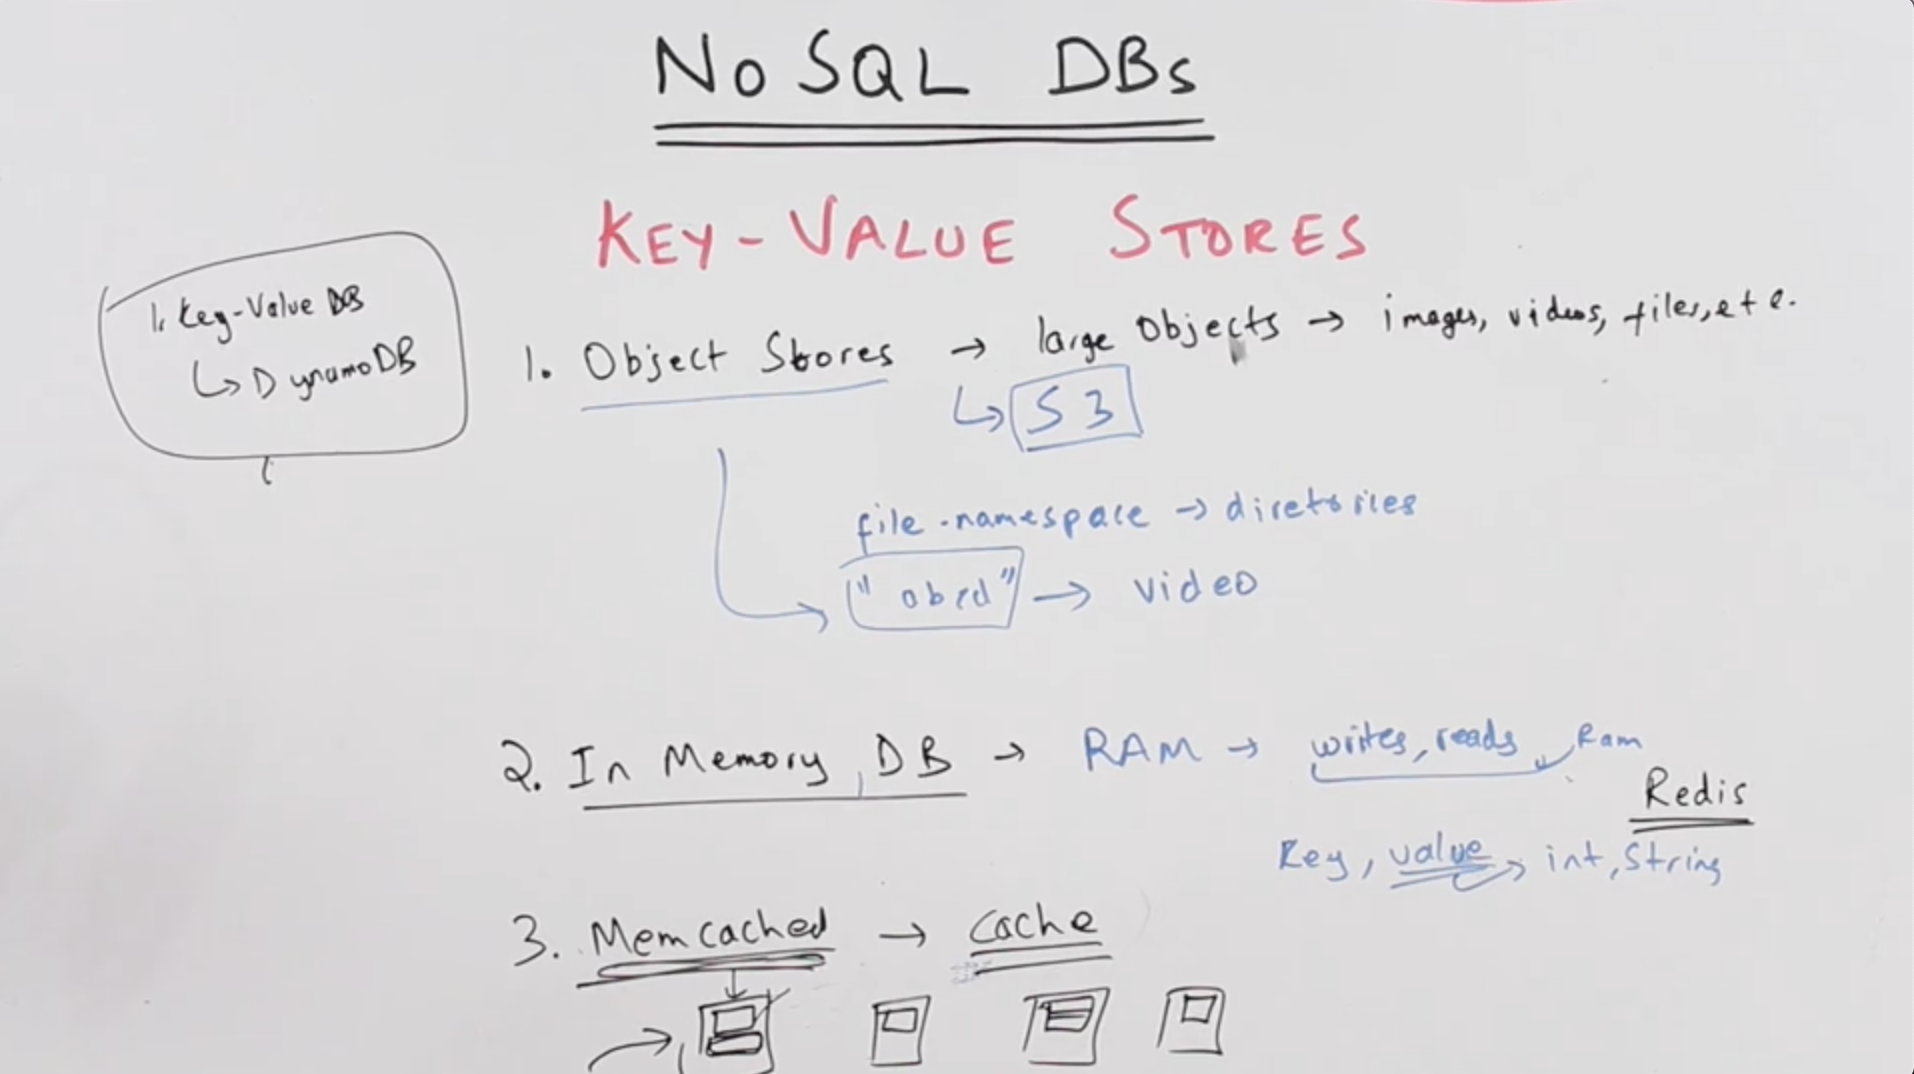 NoSQL DBs
KEY-VALUE STORES
1. Key-Value DB
↳ DynamoDB
1. Object Stores → large Objects → images, videos, files, etc.
↳ S3
file-namespace → diretories
"abcd" → video
2. In Memory DB → RAM → writes, reads Ram
Redis
Key, value → int, String
3. Memcached → cache